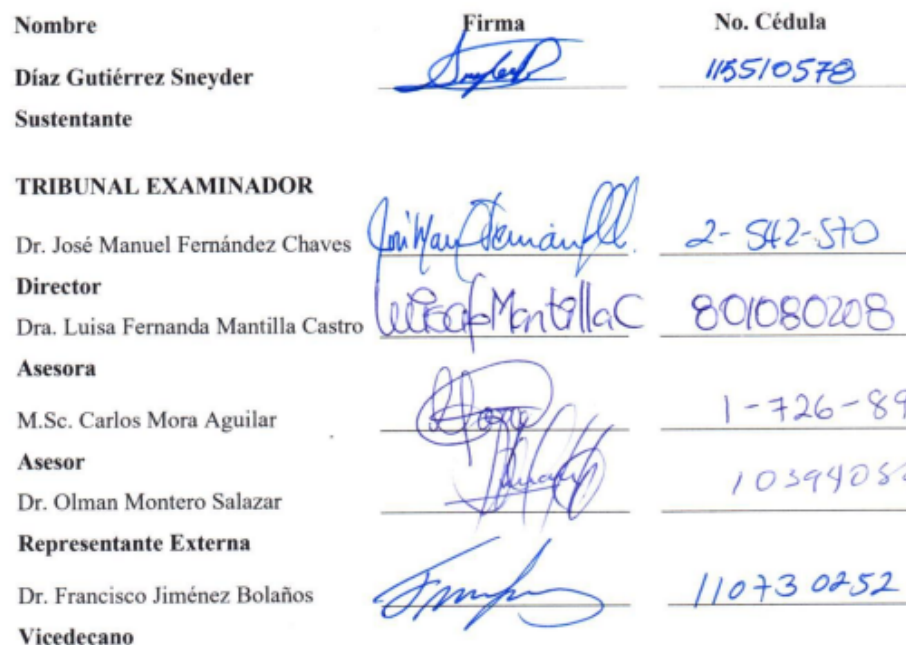 Nombre Firma No. Cédula
Díaz Gutiérrez Sneyder 115510578
Sustentante
TRIBUNAL EXAMINADOR
Dr. José Manuel Fernández Chaves 2-542-570
Director
Dra. Luisa Fernanda Mantilla Castro LuisafMantillaC 801080208
Asesora
M.Sc. Carlos Mora Aguilar 1-726-89
Asesor
Dr. Olman Montero Salazar
Representante Externa
Dr. Francisco Jiménez Bolaños 110730252
Vicedecano